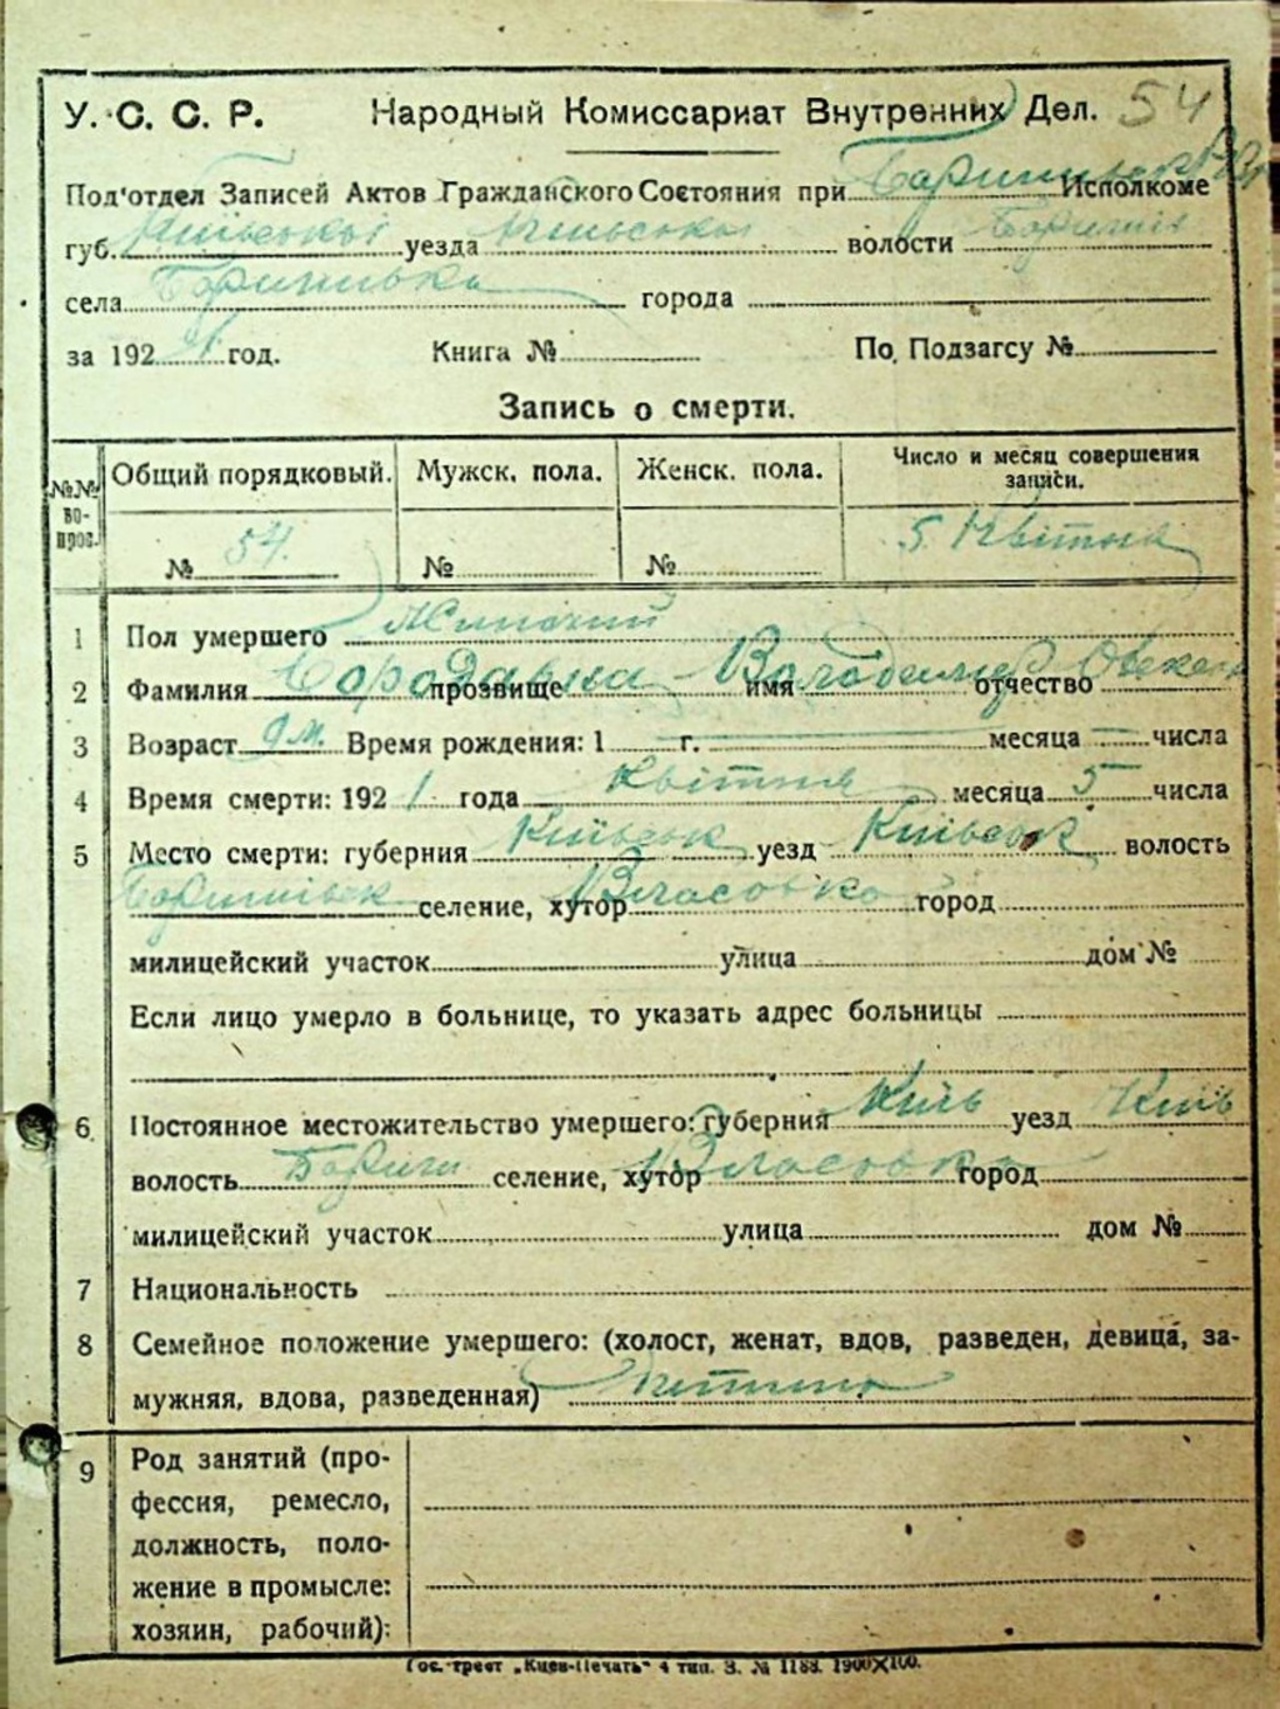 У. С. С. Р. Народный Комиссариат Внутренних Дел. 54
Под'отдел Записей Актов Гражданского Состояния при Исполкоме
губ. Київської уезда Київської волости
села города
за 192 год. Книга № По Подзагсу №
Запись о смерти.
№№ вопрос. Общий порядковый. Мужск. пола. Женск. пола. Число и месяц совершения записи.
№ 54. № № 5 Квітня
1 Пол умершего
2 Фамилия прозвище имя Володимир отчество
3 Возраст 9 м. Время рождения: 1 г. месяца числа
4 Время смерти: 192 1 года Квітня месяца 5 числа
5 Место смерти: губерния Київськ уезд Київськ волость
селение, хутор Власовка город
милицейский участок улица дом №
Если лицо умерло в больнице, то указать адрес больницы
6 Постоянное местожительство умершего: губерния Київ уезд Київ
волость Бориш селение, хутор Власовка город
милицейский участок улица дом №
7 Национальность
8 Семейное положение умершего: (холост, женат, вдов, разведен, девица, за-
мужняя, вдова, разведенная) дитина
9 Род занятий (про-
фессия, ремесло,
должность, поло-
жение в промысле:
хозяин, рабочий):
Гос. трест „Киев-Печать“ 4 тип. З. № 1188. 1900×100.